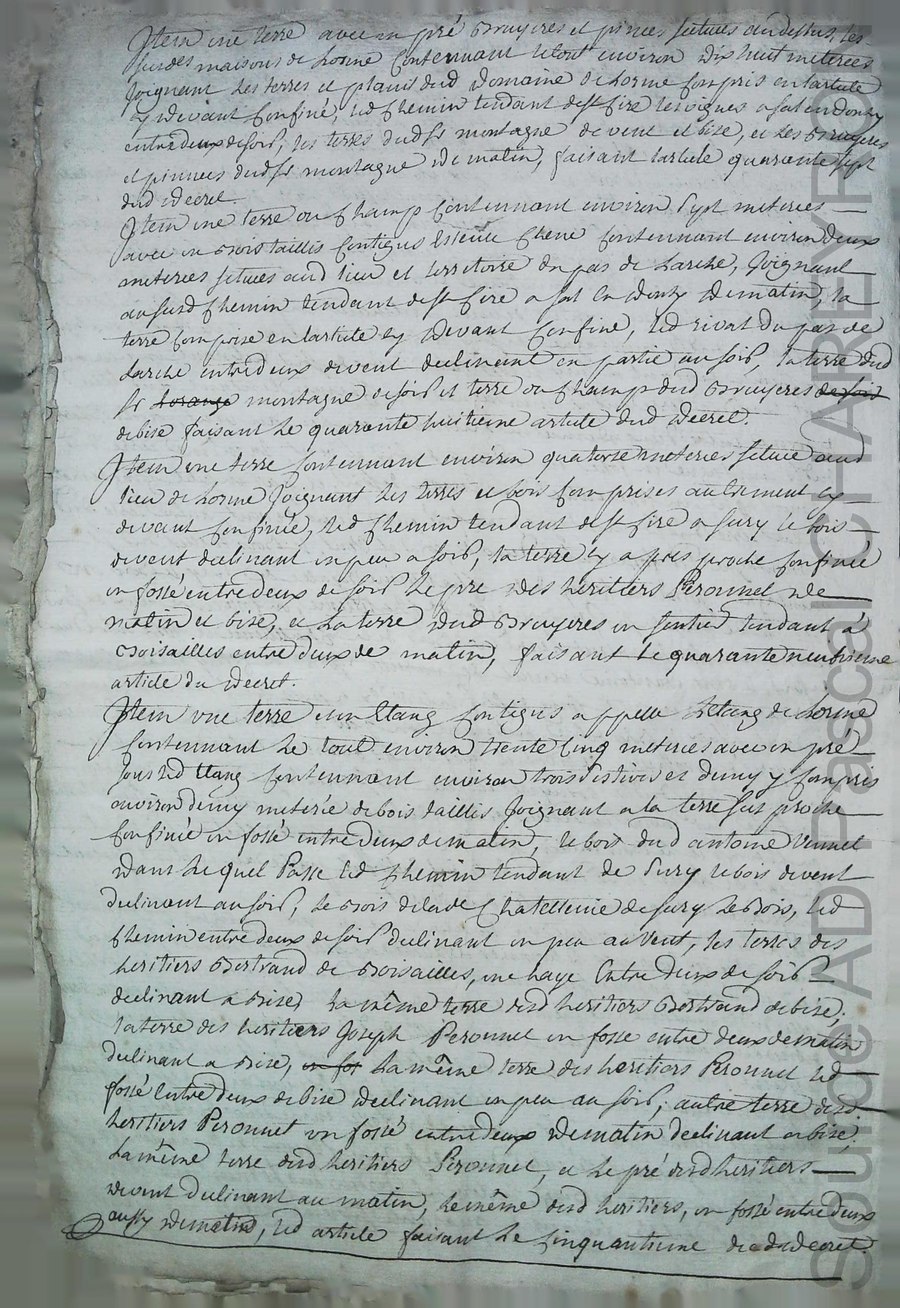 Item une terre avec un pré Bruyeres et pinees situes au dessus des
susdes maisons de Lorme Contennant le tout environ dix huit meterees
Joignant les terres et plants dud Domaine de Lorme Compris en larticle
cy devant Confiné, led Chemin tendant de St Cire les vignes a sal en donzy
entre deux de soir, les terres dud Sr montagne de vent et bise, et les Bruyeres
et pinnees dud Sr montagne de matin, faisant larticle quarante sept
dud Decret
Item une terre ou Champ Contennant environ sept meterees
avec un Bois taillis Contigus Essence Chene Contennant environ deux
meterees situes aud lieu et territoire du pas de Larche, Joignant
au susd Chemin tendant de St Cire a sal en Donzy de matin, la
terre Comprise en larticle cy devant Confiné, led rivat du pas de
Larche entre deux de vent declinant en partie au soir, la terre dud
Sr Lorange montagne de soir et terre ou Champ dud Bruyeres de soir
de bise faisant le quarante huitieme article dud Decret.
Item une terre Contennant environ quatorze meterees située aud
lieu de Lorme Joignant les terres et bois Comprises autrement cy
devant Confinée, led Chemin tendant de St Cire a Sury le bois
de vent declinant un peu a soir, la terre cy apres proche Confinée
un fossé entre deux de soir le pre des heritiers Peronnet de
matin et bise, et la terre dud Bruyeres un sentier tendant à
Boisailles entre deux de matin, faisant le quarante neuvieme
article du Decret.
Item une terre et un Etang Contigus appellé Letang de Lorme
Contennant le tout environ trente Cinq meterees avec un pré
sous led Etang Contennant environ trois sestivies et demy y Compris
environ demy meterée de bois taillis Joignant a la terre sus proche
Confinée un fossé entre deux de matin, le bois dud antoine Vennet
dans lequel Passe led Chemin tendant de Sury le bois de vent
declinant au soir, le Bois de lade Chatellenie de Sury Le Bois, led
Chemin entre deux de soir declinant un peu au Vent, les terres des
heritiers Bertrand de Boisailles, une haye Entre deux de soir
declinant a Bise, la même terre desd heritiers Bertrand de bise,
la terre des heritiers Joseph Peronnet un fossé entre deux de matin
declinant a Bise, un fos La même terre des heritiers Peronnet led
fossé Entre deux de bise declinant un peu au soir, autre terre desd
heritiers Peronnet un fossé entre deux de matin declinant a bise,
La même terre desd heritiers Peronnet, et le pré desd heritiers
de vent declinant au matin, le même desd heritiers, un fossé entre deux
aussy de matin, led article faisant le Cinquantieme dud Decret.
Source AD Pascal CHAREYRON